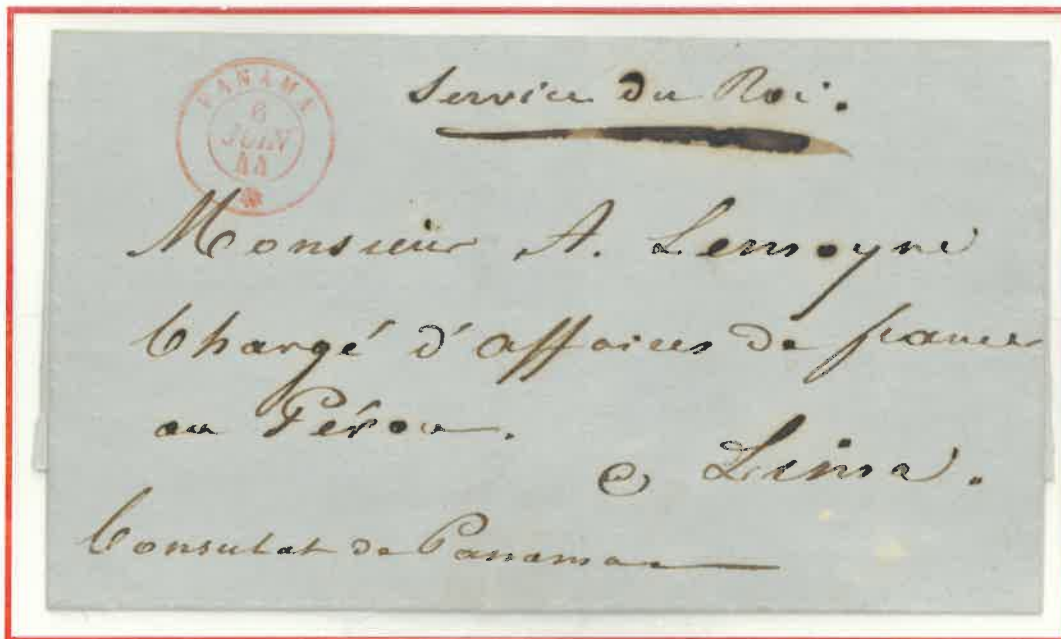 PANAMA
6
JUIN
44
Service du Roi.
Monsieur A. Lemoyne
Chargé d'affaires de france
au Pérou.
à Lima.
Consulat de Panama